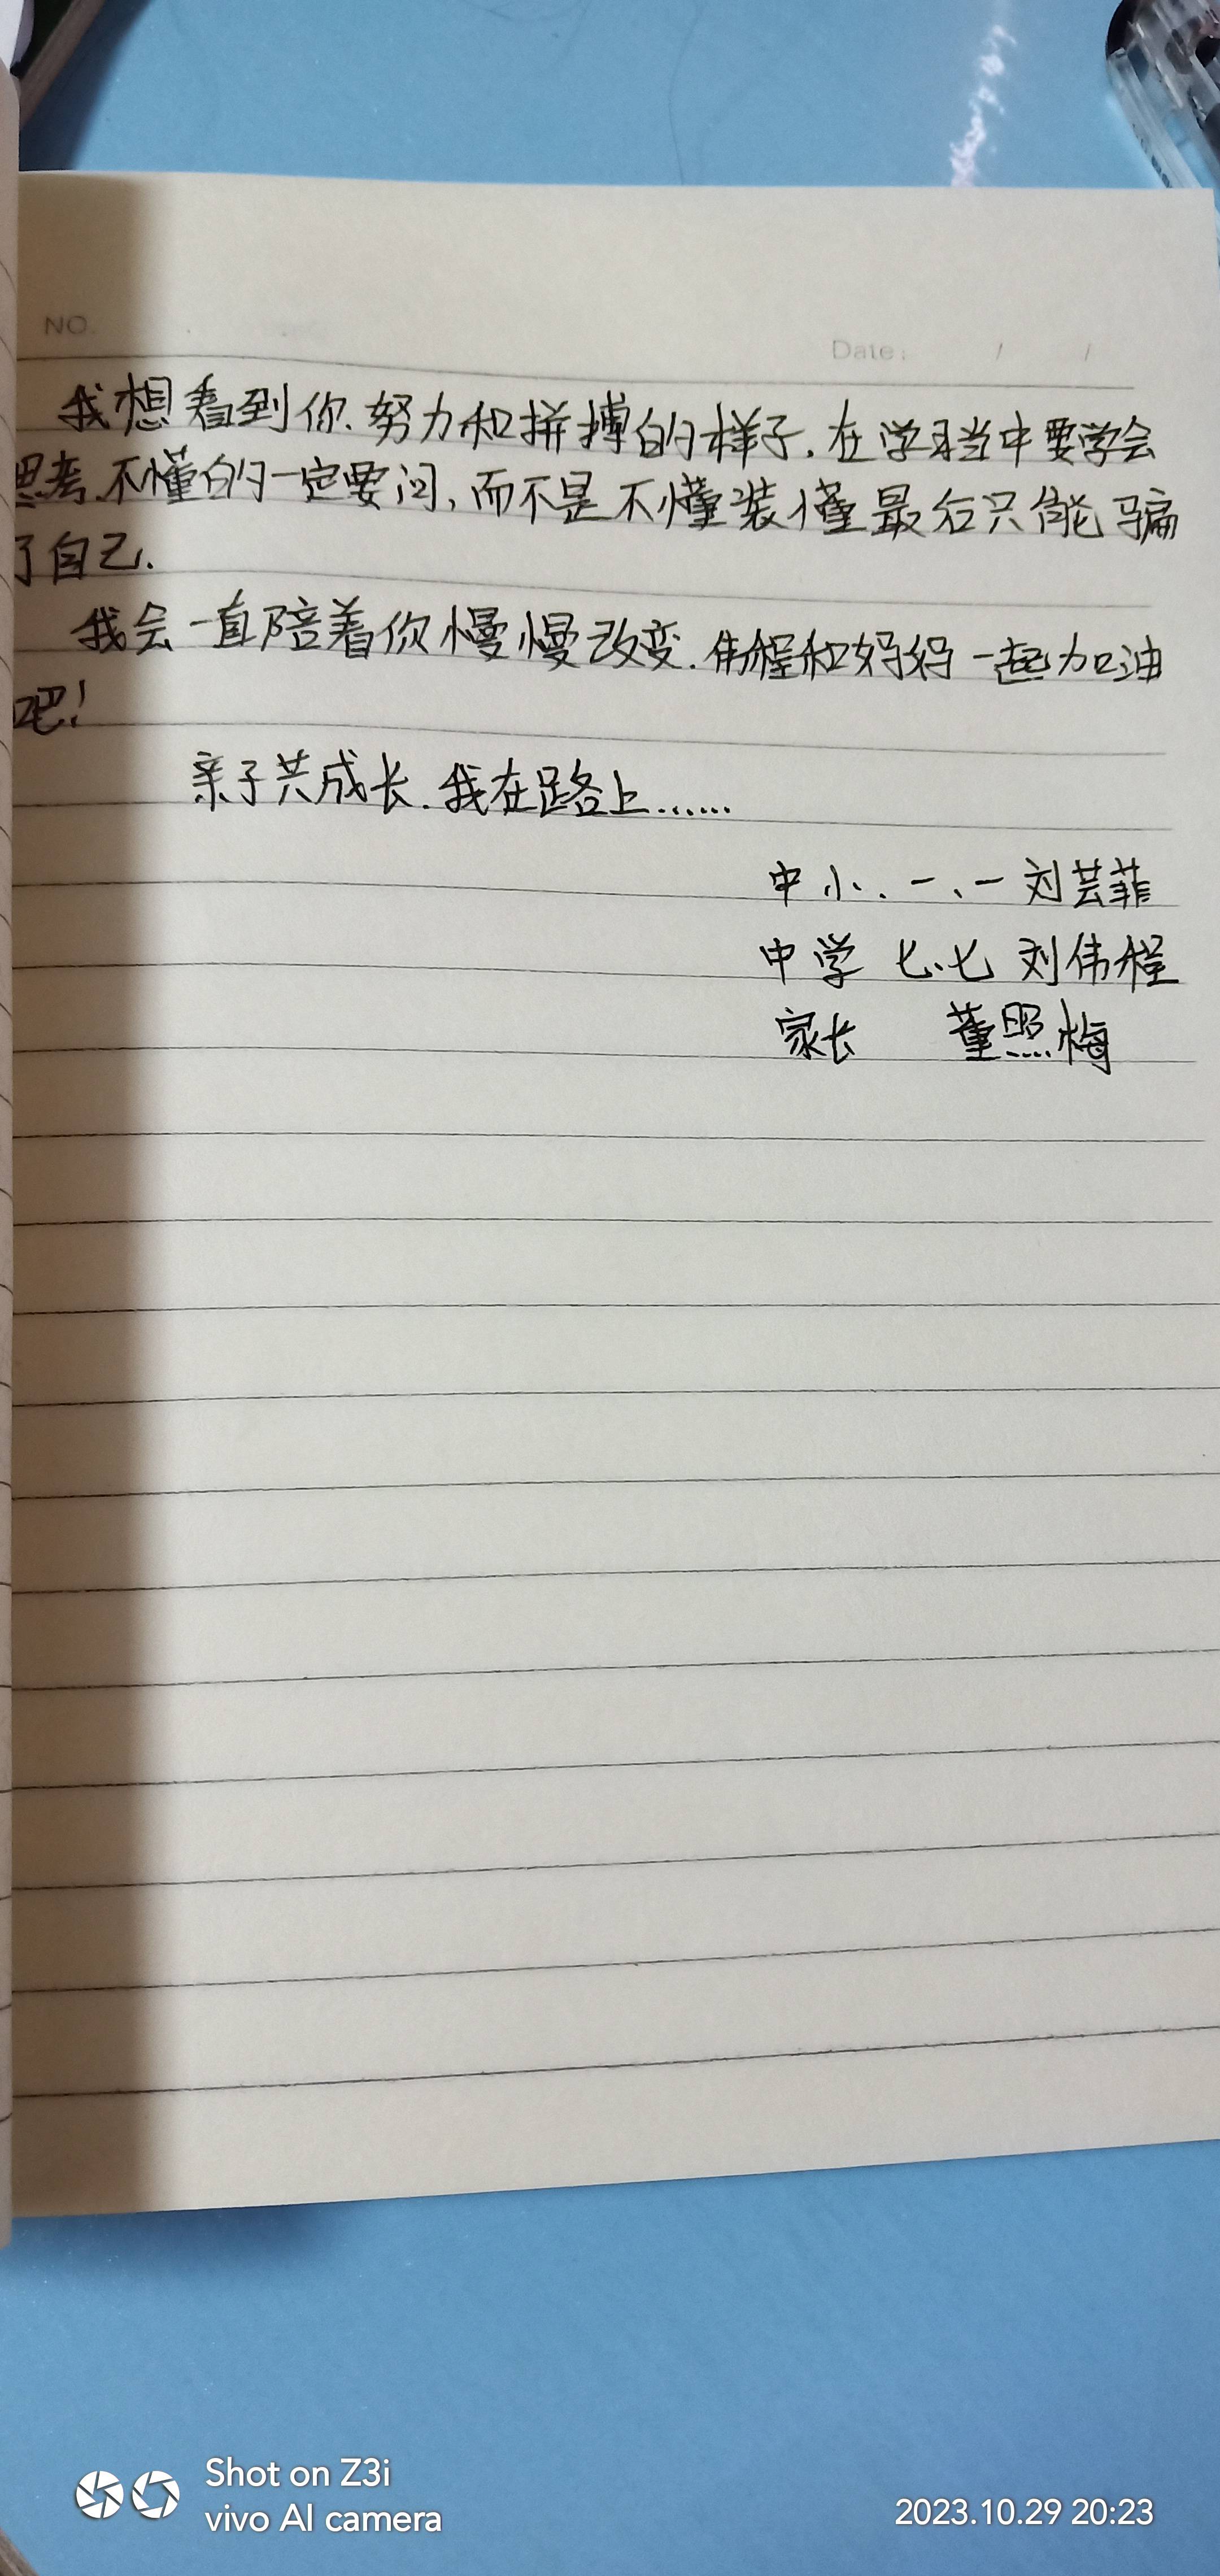 NO.
Date: / /
我想看到你.努力和拼搏的样子.在学习当中要学会
思考.不懂的一定要问,而不是不懂装懂最后只能骗
了自己.
我会一直陪着你慢慢改变.伟程和妈妈一起加油
吧!
亲子共成长.我在路上......
中小.一、一刘芸菲
中学 七、七 刘伟程
家长 董照梅
Shot on Z3i
vivo AI camera
2023.10.29 20:23